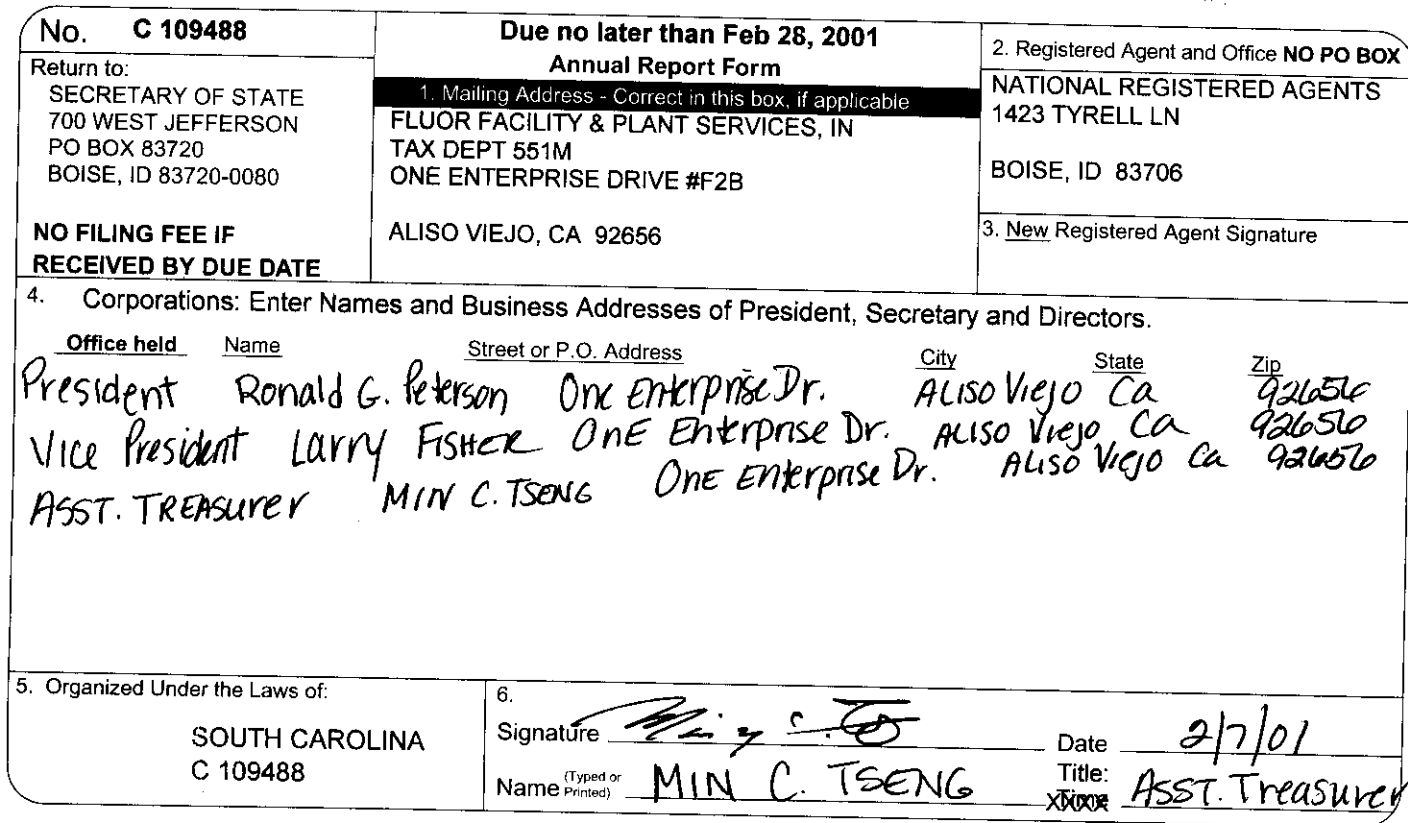 No. C 109488
Return to:
SECRETARY OF STATE
700 WEST JEFFERSON
PO BOX 83720
BOISE, ID 83720-0080
NO FILING FEE IF
RECEIVED BY DUE DATE
Due no later than Feb 28, 2001
Annual Report Form
1. Mailing Address - Correct in this box, if applicable
FLUOR FACILITY & PLANT SERVICES, IN
TAX DEPT 551M
ONE ENTERPRISE DRIVE #F2B
ALISO VIEJO, CA 92656
2. Registered Agent and Office NO PO BOX
NATIONAL REGISTERED AGENTS
1423 TYRELL LN
BOISE, ID 83706
3. New Registered Agent Signature
4. Corporations: Enter Names and Business Addresses of President, Secretary and Directors.
Office held Name Street or P.O. Address City State Zip
President Ronald G. Peterson One Enterprise Dr. Aliso Viejo Ca 92656
Vice President Larry Fisher One Enterprise Dr. Aliso Viejo Ca 92656
Asst. Treasurer Min C. Tseng One Enterprise Dr. Aliso Viejo Ca 92656
5. Organized Under the Laws of:
SOUTH CAROLINA
C 109488
6.
Signature Date 2/7/01
Name (Typed or Printed) MIN C. TSENG Title: Asst. Treasurer